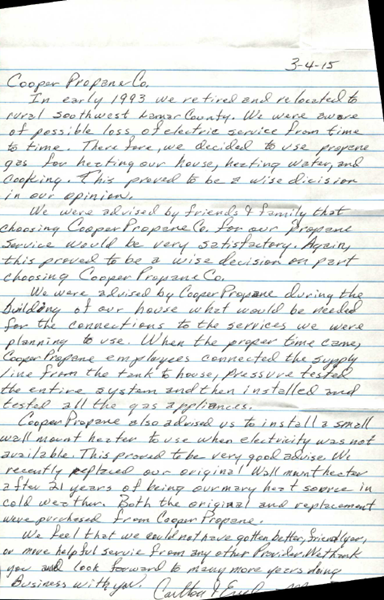 3-4-15
Cooper Propane Co.
In early 1993 we retired and relocated to
rural Southwest Lamar County. We were aware
of possible loss of electric service from time
to time. Therefore, we decided to use propane
gas for heating our house, heating water, and
cooking. This proved to be a wise dicision
in our opinion.
We were advised by friends & family that
choosing Cooper Propane Co. for our propane
service would be very satisfactory. Again,
this proved to be a wise decision on part
choosing Cooper Propane Co.
We were advised by Cooper Propane during the
building of our house what would be needed
for the connections to the services we were
planning to use. When the proper time came,
Cooper Propane employees connected the supply
line from the tank to house, pressure tested
the entire system and then installed and
tested all the gas appliances.
Cooper Propane also advised us to install a small
wall mount heater to use when electricity was not
available. This proved to be very good advise. We
recently replaced our original wall mount heater
after 21 years of being our mary heat source in
cold weather. Both the original and replacement
were purchased from Cooper Propane.
We feel that we could not have gotten better, friendlyer,
or more helpful service from any other Provider. We thank
you and look forward to many more years doing
Business with you. Carlton &